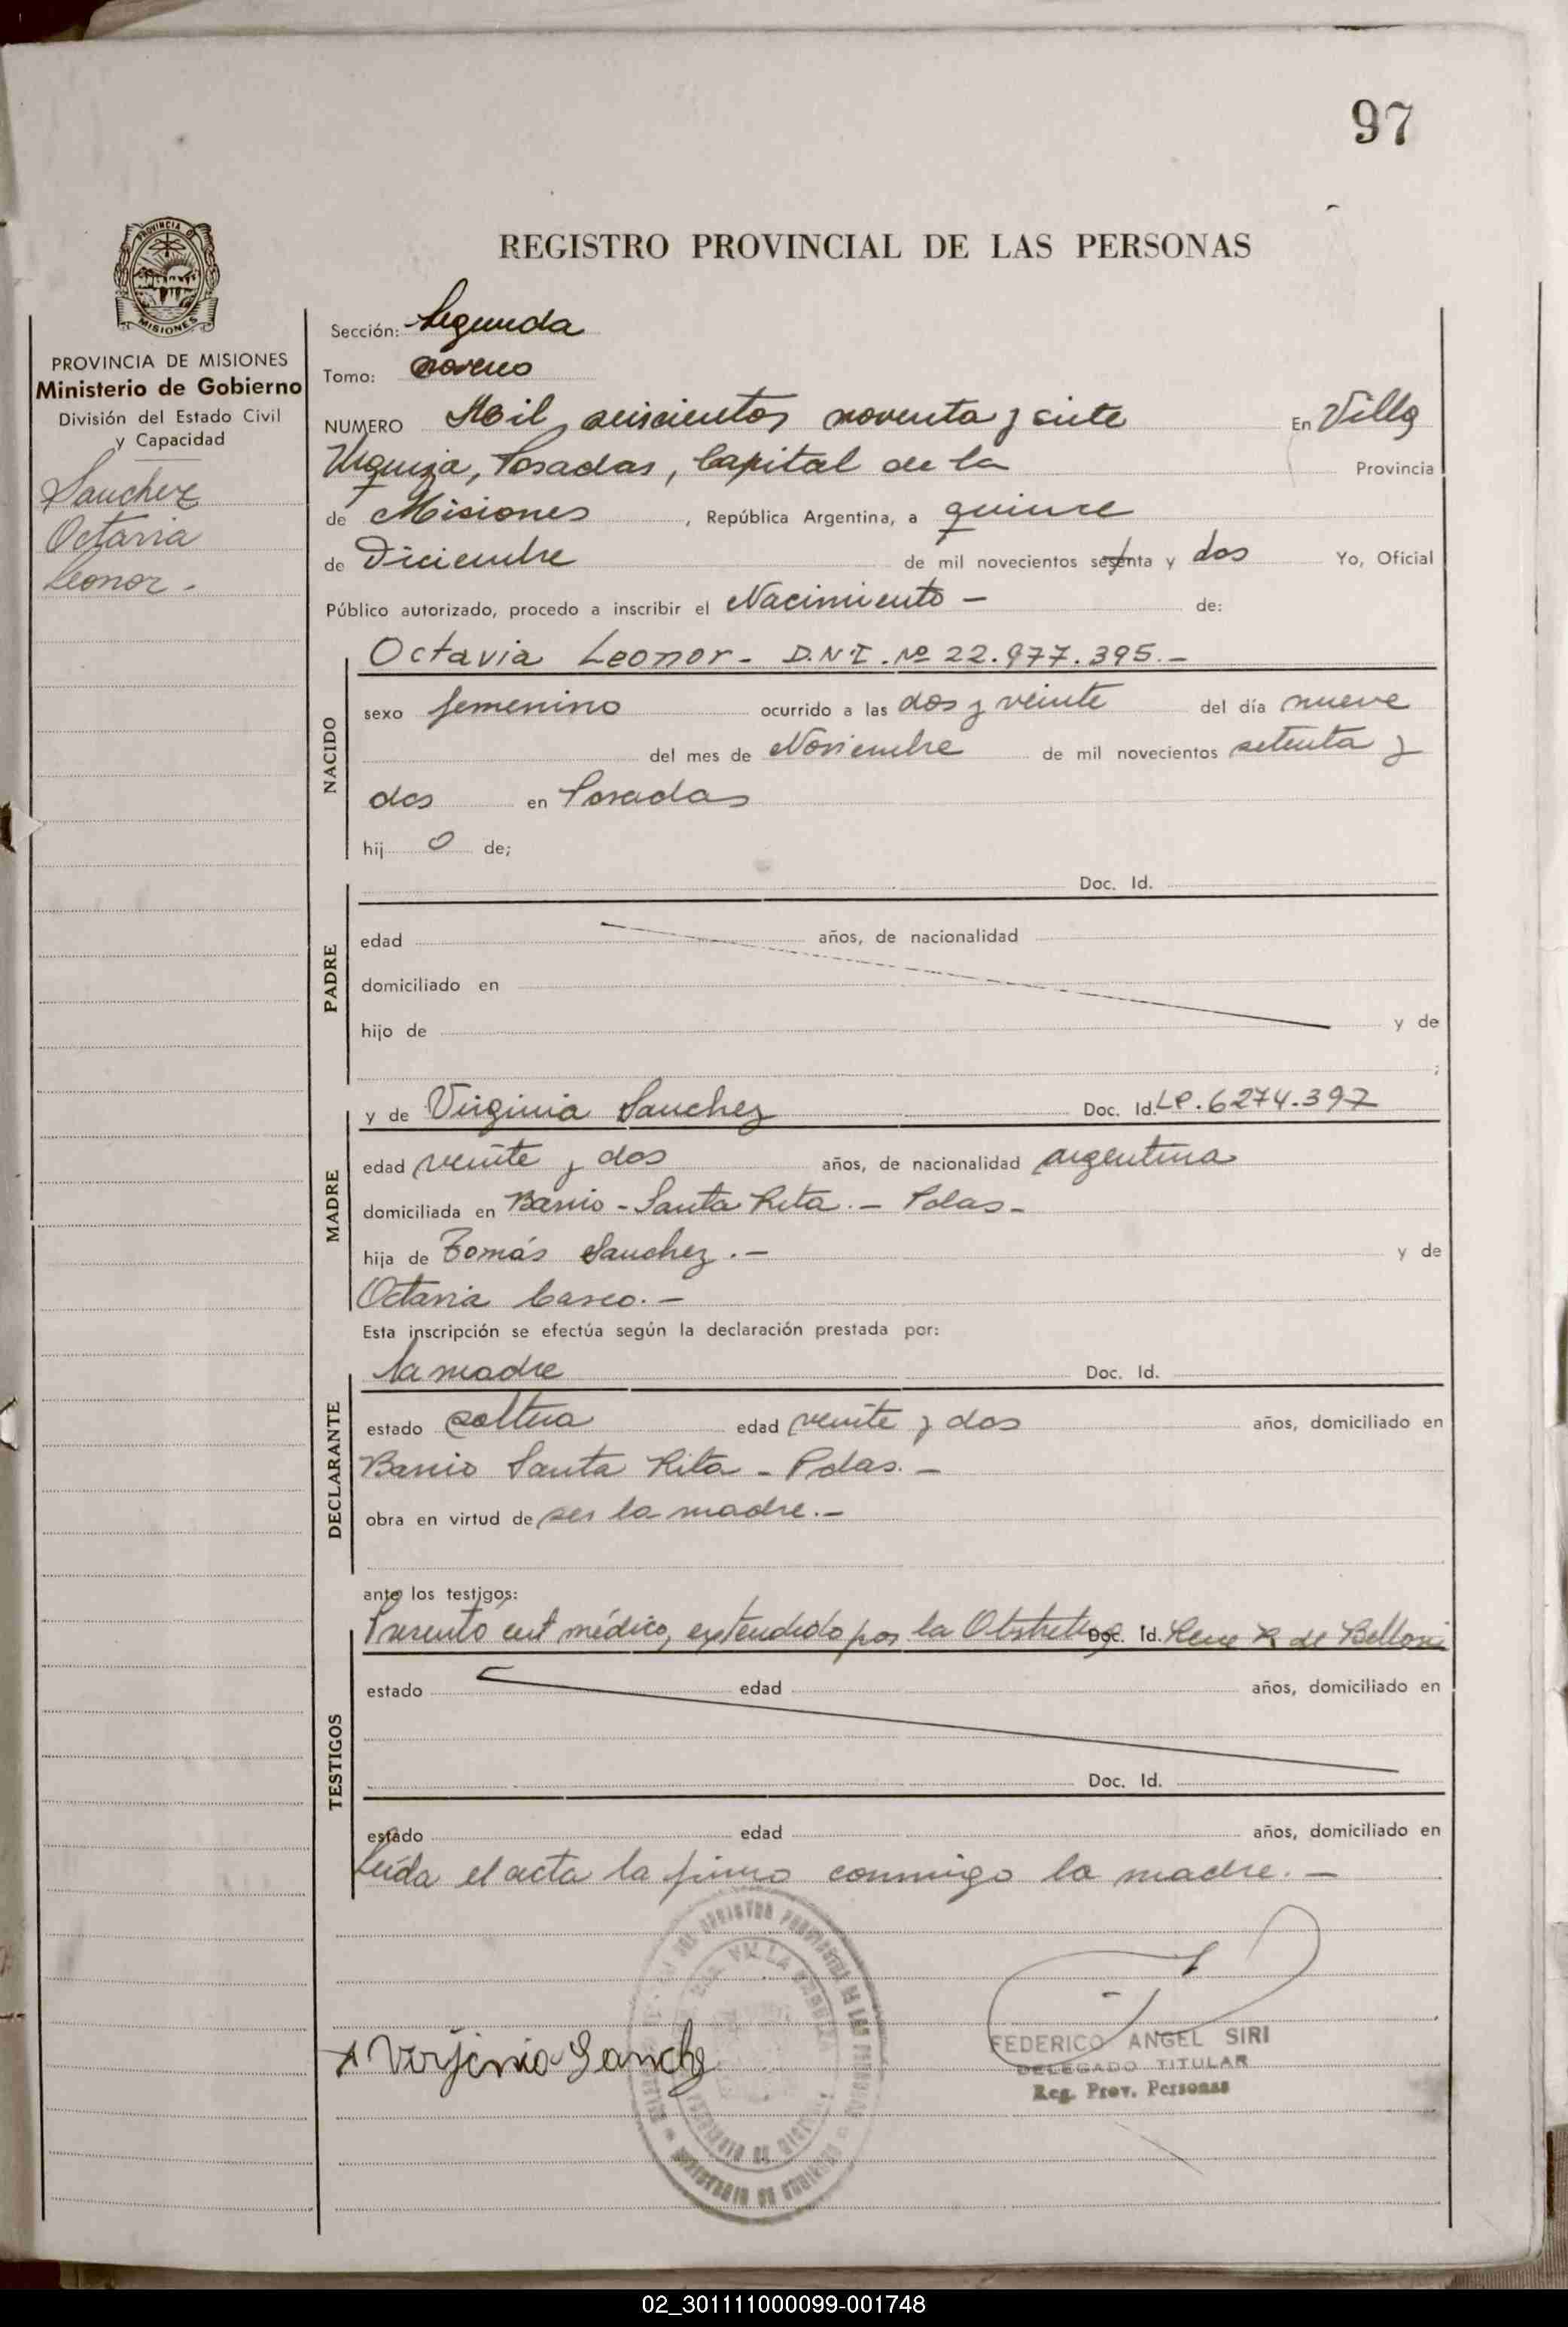 97
REGISTRO PROVINCIAL DE LAS PERSONAS
PROVINCIA DE MISIONES
Ministerio de Gobierno
División del Estado Civil
y Capacidad
Sanchez
Octavia
Leonor.-
Sección: Segunda
Tomo: noveno
NUMERO Mil seiscientos noventa y siete En Villa
Urquiza, Posadas, Capital de la Provincia
de Misiones, República Argentina, a quince
de Diciembre de mil novecientos setenta y dos Yo, Oficial
Público autorizado, procedo a inscribir el Nacimiento - de:
NACIDO
Octavia Leonor- D.N.I. Nº 22.977.395.-
sexo femenino ocurrido a las dos y veinte del día nueve
del mes de Noviembre de mil novecientos setenta y
dos en Posadas
hij o de;
PADRE
Doc. Id.
edad años, de nacionalidad
domiciliado en
hijo de y de
;
MADRE
y de Virginia Sanchez Doc. Id. LP. 6274.397
edad veinte y dos años, de nacionalidad argentina
domiciliada en Barrio - Santa Rita.- Pdas-
hija de Tomás Sanchez.- y de
Octavia .-
Esta inscripción se efectúa según la declaración prestada por:
DECLARANTE
la madre Doc. Id.
estado soltera edad veinte y dos años, domiciliado en
Barrio Santa Rita - Pdas.-
obra en virtud de ser la madre.-
ante los testigos:
TESTIGOS
Presentó cert médico, extendido por la Doc. Id. de Belloni
estado edad años, domiciliado en
Doc. Id.
estado edad años, domiciliado en
Leída el acta la firma conmigo la madre.-
x Verjinia Sanchez
FEDERICO ANGEL SIRI
DELEGADO TITULAR
Reg. Prov. Personas
02_301111000099-001748